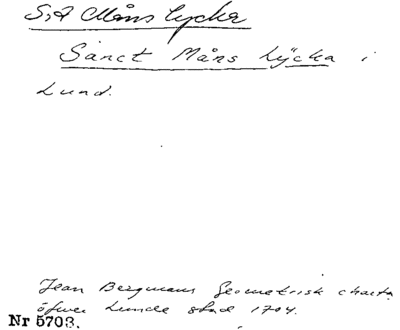 S:t Måns lycka
Sanct Måns Lÿcka i
Lund.
Jean Bergmans Geometrisk charta
öfwer Lunde stad 1704.
Nr 5703.